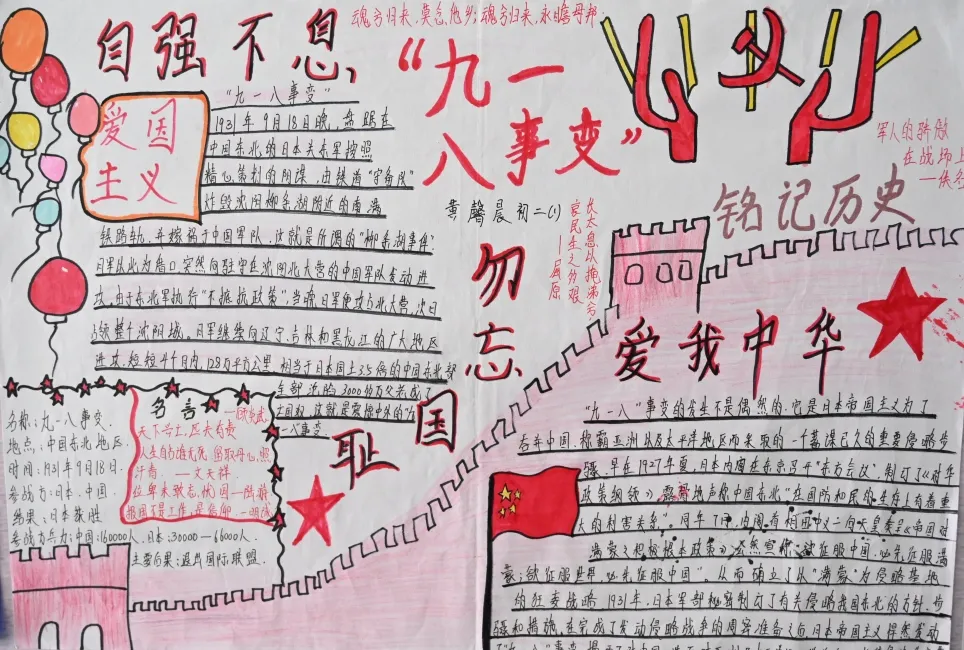 魂兮归来,莫忘他乡;魂兮归来,永瞻母邦.
自强不息,
“九一
八事变”
军人的骄傲
在战场上
爱国
主义
“九一八事变”
1931年9月18日晚,盘踞在
中国东北的日本关东军按照
精心策划的阴谋,由铁道“守备队”
炸毁沈阳柳条湖附近的南满
铁路轨,并嫁祸于中国军队,这就是所谓的“柳条湖事件”
日军以此为借口,突然向驻守在沈阳北大营的中国军队发动进
攻,由于东北军执行“不抵抗政策”,当晚日军便攻占北大营,次日
占领整个沈阳城。日军继续向辽宁、吉林和黑龙江的广大地区
进攻,短短4个月内,128万平方公里、相当于日本国土3.5倍的中国东北
全部沦陷,3000多万父老成了
亡国奴,这就是震惊中外的“九
一八事变
黄馨晨 初二(1)
长太息以掩涕兮,
哀民生之多艰
—屈原
铭记历史
勿忘
国耻
爱我中华
名称:九·一八事变.
地点:中国东北地区.
时间:1931年9月18日.
参战方:日本、中国.
结果:日本获胜
参战方兵力:中国:160000人、日本:30000—66000人.
主要后果:退出国际联盟.
名言
—顾炎武
天下兴亡,匹夫有责
人生自古谁无死,留取丹心照
汗青. —文天祥
位卑未敢忘忧国—陆游
“九一八”事变的发生不是偶然的.它是日本帝国主义为了
吞并中国、称霸亚洲以及太平洋地区而采取的一个蓄谋已久的重要侵略步
骤.早在1927年夏,日本内阁在东京召开“东方会议”,制订了《对华
政策纲领》,露骨地声称中国东北“在国防和国民的生存上有着重
大的利害关系”。同年7月,内阁首相田中义一向天皇奏呈《帝国对
满蒙之积极根本政策》,公然宣称:欲征服中国,必先征服满
蒙;欲征服世界,必先征服中国”。从而确立了以“满蒙”为侵略基地
的狂妄战略.1931年,日本军部秘密制订了有关侵略我国东北的方针、步
骤和措施,在完成了发动侵略战争的周密准备之后,日本帝国主义悍然发动